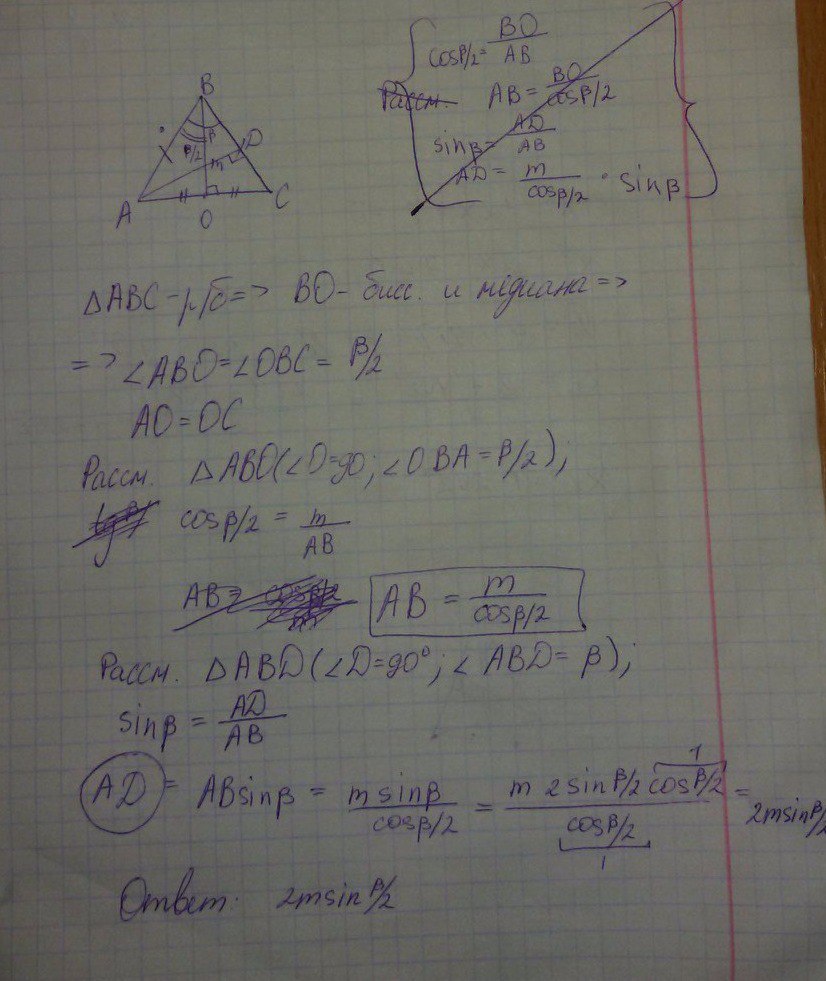 B
β/2
β
m
D
A
O
C
cosβ/2 = BO/AB
Рассм. AB = BO/cosβ/2
sinβ = AD/AB
AD = m/cosβ/2 · sinβ
△ABC - р/б => BO - бисс. и медиана =>
=> ∠ABO = ∠OBC = β/2
AO = OC
Рассм. △ABO (∠O=90; ∠OBA = β/2);
cosβ/2 = m/AB
AB = AB = m/cosβ/2
Рассм. △ABD (∠D=90°; ∠ABD = β);
sinβ = AD/AB
AD = ABsinβ = m sinβ/cosβ/2 = m 2 sinβ/2 cosβ/2/cosβ/2 = 2msinβ/2
1
1
Ответ: 2msinβ/2